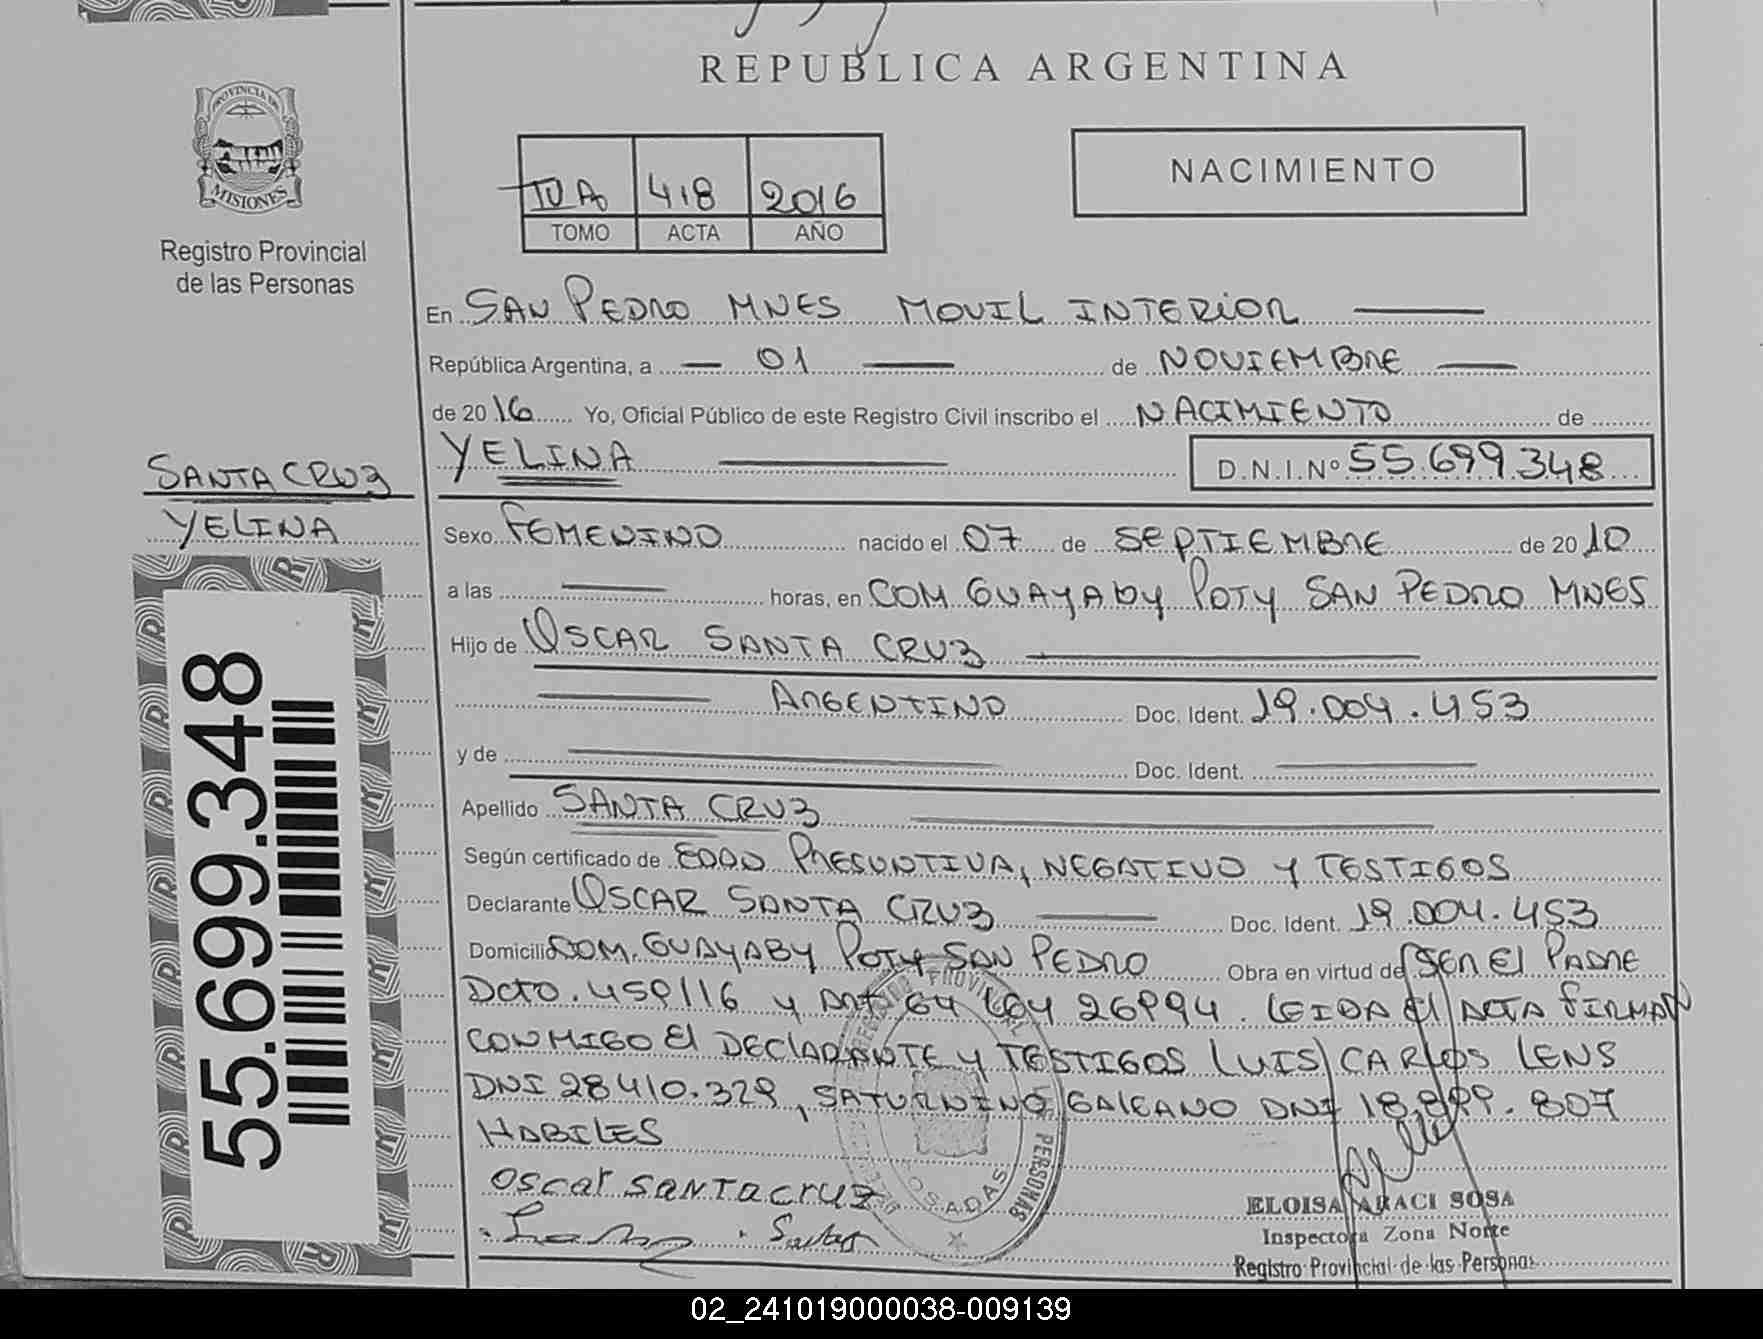 REPUBLICA ARGENTINA
PROVINCIA DE
MISIONES
Registro Provincial
de las Personas
NACIMIENTO
418 2016
TOMO ACTA AÑO
En SAN PEDRO MNES MOVIL INTERIOR
República Argentina, a 01 de NOVIEMBRE
de 2016 Yo, Oficial Público de este Registro Civil inscribo el NACIMIENTO de
YELINA D.N.I.Nº 55.699.348
SANTA CRUZ
YELINA
Sexo FEMENINO nacido el 07 de SEPTIEMBRE de 2010
a las horas, en COM. GUAYABY POTY SAN PEDRO MNES
Hijo de OSCAR SANTA CRUZ
ARGENTINO Doc. Ident. 19.004.453
y de Doc. Ident.
Apellido SANTA CRUZ
Según certificado de EDAD PRESUNTIVA, NEGATIVO Y TESTIGOS
Declarante OSCAR SANTA CRUZ Doc. Ident. 19.004.453
Domicilio COM. GUAYABY POTY SAN PEDRO Obra en virtud de SER El PADRE
Dcto. y Art 64 LEY 26994. LEIDA El ACTA FIRMAN
CONMIGO El DEClARANTE y TESTIGOS LUIS CARLOS LENS
DNI 28410.329, SATURNINO GALEANO DNI 18.899.807
HABILES
oscar santacruz
ELOISA ARACI SOSA
Inspectora Zona Norte
Registro Provincial de las Personas
55.699.348
02_241019000038-009139